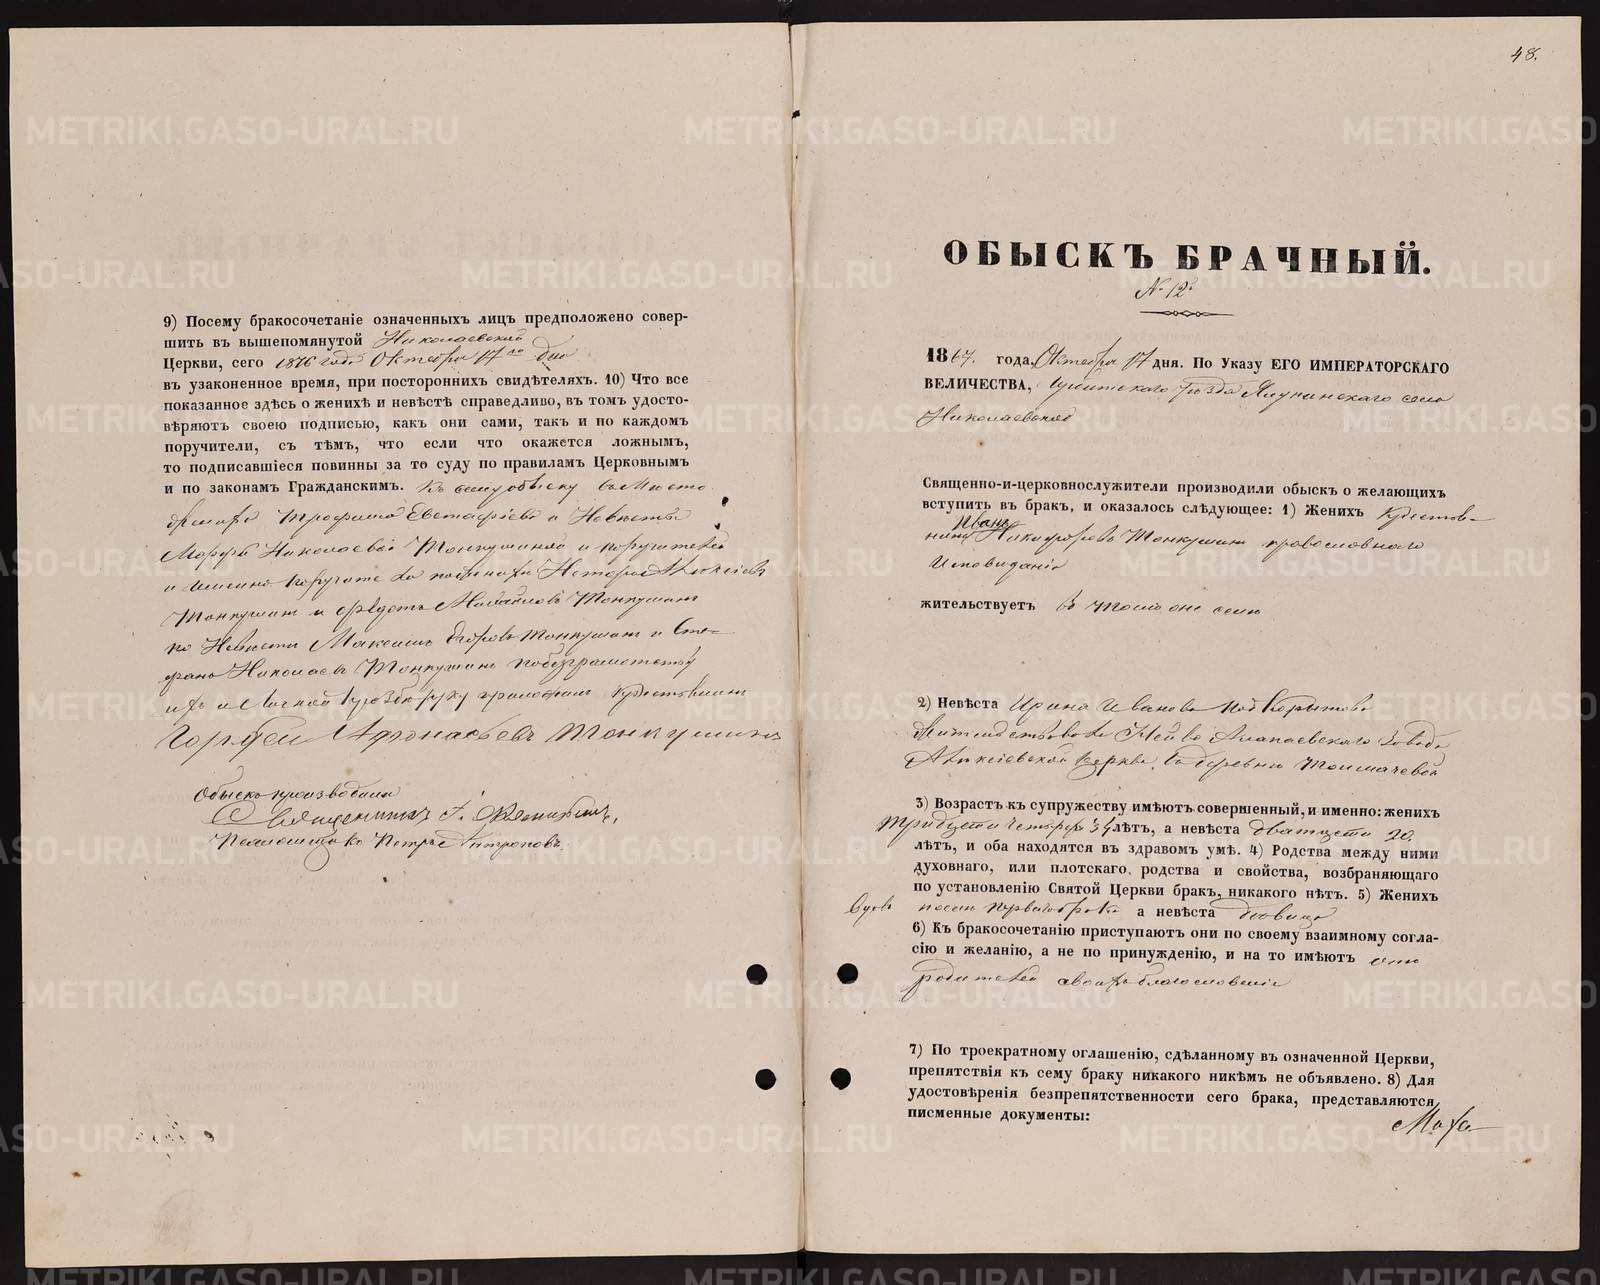 9) Посему бракосочетаніе означенныхъ лицъ предположено совер-
шить въ вышепомянутой Николаевской
Церкви, сего 1876 года Октября 17го дня
въ узаконенное время, при постороннихъ свидѣтеляхъ. 10) Что все
показанное здѣсь о женихѣ и невѣстѣ справедливо, въ томъ удосто-
вѣряютъ своею подписью, какъ они сами, такъ и по каждомъ
поручители, съ тѣмъ, что если что окажется ложнымъ,
то подписавшіеся повинны за то суду по правиламъ Церковнымъ
и по законамъ Гражданскимъ. Къ сему обыску вмѣсто
Трофима Евстафіева и Невѣсты
Марфы Николаевой Тонкушиной и поручителей
Тонкушинъ и Тонкушинъ
по Невѣсти Максимъ Егоровъ Тонкушинъ и Сте-
фанъ Николаевъ Тонкушинъ
ихъ и личной прозбе руку приложилъ крестьянинъ
Гордей Афонасьевъ Тонкушинъ
Обыскъ производили
Священникъ І.
Петръ
48.
ОБЫСКЪ БРАЧНЫЙ.
№ 12.
1867. года, Октября 17 дня. По Указу ЕГО ИМПЕРАТОРСКАГО
ВЕЛИЧЕСТВА, Ирбитскаго уѣзда Ялунинскаго села
Николаевской
Священно-и-церковнослужители производили обыскъ о желающихъ
вступить въ бракъ, и оказалось слѣдующее: 1) Женихъ крестья-
нинъ Иванъ Никифоровъ Тонкушинъ православнаго
Исповиданія
жительствуетъ въ томъ оне селѣ
2) Невѣста Ирина Иванова
Алапаевскаго Завода
Алексіевской Церкви, въ деревни Толмачевой
3) Возрастъ къ супружеству имѣютъ совершенный, и именно: женихъ
Тридцети четырёхъ 34 лѣтъ, а невѣста дватцети 20.
лѣтъ, и оба находятся въ здравомъ умѣ. 4) Родства между ними
духовнаго, или плотскаго родства и свойства, возбраняющаго
по установленію Святой Церкви бракъ, никакого нѣтъ. 5) Женихъ
Вдовъ послѣ перваго брака а невѣста девица
6) Къ бракосочетанію приступаютъ они по своему взаимному согла-
сію и желанію, а не по принужденію, и на то имѣютъ отъ
родителей своихъ благословеніе
7) По троекратному оглашенію, сдѣланному въ означенной Церкви,
препятствія къ сему браку никакого никѣмъ не объявлено. 8) Для
удостовѣренія безпрепятственности сего брака, представляются
писменные документы:
METRIKI.GASO-URAL.RU